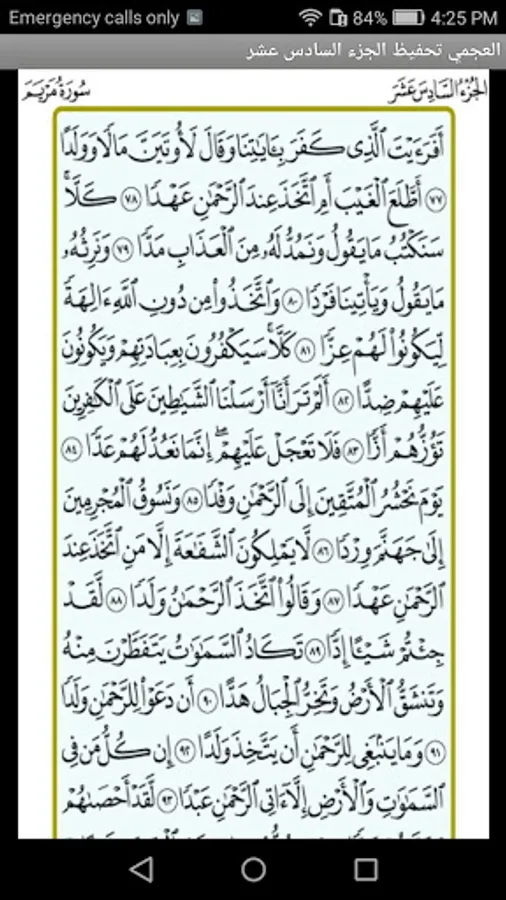 Emergency calls only 84% 4:25 PM
العجمي تحفيظ الجزء السادس عشر
الجُزْءُ السَّادِسَ عَشَرَ سُورَةُ مَرْيَمَ
أَفَرَءَيْتَ ٱلَّذِى كَفَرَ بِـَٔايَـٰتِنَا وَقَالَ لَأُوتَيَنَّ مَالًا وَوَلَدًا
٧٧ أَطَّلَعَ ٱلْغَيْبَ أَمِ ٱتَّخَذَ عِندَ ٱلرَّحْمَـٰنِ عَهْدًا ٧٨ كَلَّا ۚ
سَنَكْتُبُ مَا يَقُولُ وَنَمُدُّ لَهُۥ مِنَ ٱلْعَذَابِ مَدًّا ٧٩ وَنَرِثُهُۥ
مَا يَقُولُ وَيَأْتِينَا فَرْدًا ٨٠ وَٱتَّخَذُوا۟ مِن دُونِ ٱللَّهِ ءَالِهَةً
لِّيَكُونُوا۟ لَهُمْ عِزًّا ٨١ كَلَّا ۚ سَيَكْفُرُونَ بِعِبَادَتِهِمْ وَيَكُونُونَ
عَلَيْهِمْ ضِدًّا ٨٢ أَلَمْ تَرَ أَنَّآ أَرْسَلْنَا ٱلشَّيَـٰطِينَ عَلَى ٱلْكَـٰفِرِينَ
تَؤُزُّهُمْ أَزًّا ٨٣ فَلَا تَعْجَلْ عَلَيْهِمْ ۖ إِنَّمَا نَعُدُّ لَهُمْ عَدًّا ٨٤
يَوْمَ نَحْشُرُ ٱلْمُتَّقِينَ إِلَى ٱلرَّحْمَـٰنِ وَفْدًا ٨٥ وَنَسُوقُ ٱلْمُجْرِمِينَ
إِلَىٰ جَهَنَّمَ وِرْدًا ٨٦ لَّا يَمْلِكُونَ ٱلشَّفَـٰعَةَ إِلَّا مَنِ ٱتَّخَذَ عِندَ
ٱلرَّحْمَـٰنِ عَهْدًا ٨٧ وَقَالُوا۟ ٱتَّخَذَ ٱلرَّحْمَـٰنُ وَلَدًا ٨٨ لَّقَدْ
جِئْتُمْ شَيْـًٔا إِدًّا ٨٩ تَكَادُ ٱلسَّمَـٰوَٰتُ يَتَفَطَّرْنَ مِنْهُ
وَتَنشَقُّ ٱلْأَرْضُ وَتَخِرُّ ٱلْجِبَالُ هَدًّا ٩٠ أَن دَعَوْا۟ لِلرَّحْمَـٰنِ وَلَدًا
٩١ وَمَا يَنۢبَغِى لِلرَّحْمَـٰنِ أَن يَتَّخِذَ وَلَدًا ٩٢ إِن كُلُّ مَن فِى
ٱلسَّمَـٰوَٰتِ وَٱلْأَرْضِ إِلَّآ ءَاتِى ٱلرَّحْمَـٰنِ عَبْدًا ٩٣ لَّقَدْ أَحْصَىٰهُمْ